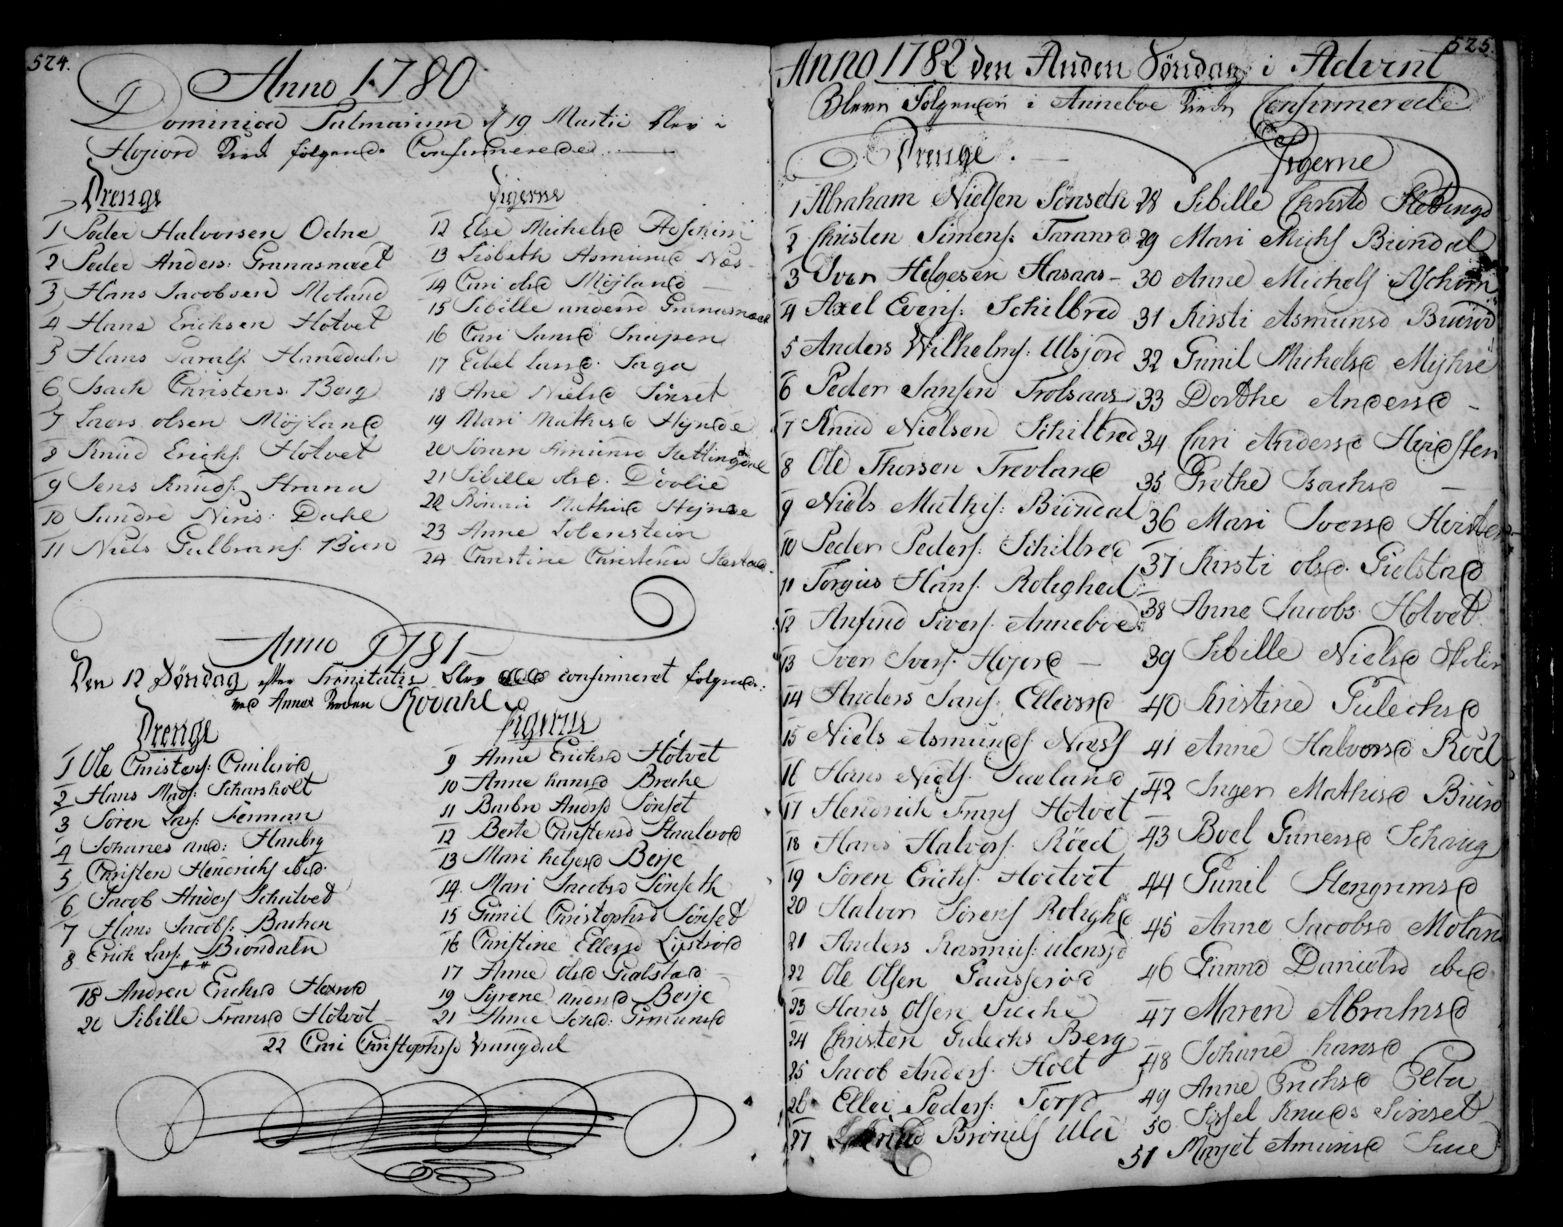 524.
Anno 1780
Dominica Palmarum d 19 Martii blev i
Hojord Kirke følgende Confirmerede
Drenge
1 Peder Halvorsen Odne
2 Peder Anders: Grunasnæet
3 Hans Jacobsen Moland
4 Hans Ericksen Hotvet
5 Hans Taralfs: Hanedaln
6 Isach Christens. Borg
7 Laers olsen Möjland
8 Knud Erichs. Hotvet
9 Jens Knuds. Hrana
10 Sundre Niris: Dahl
11 Niels Gulbrans. Böen
Pigerne
12 Else Michelsd
13 Lisbeth Asmunsd Næs
14 Cari olsd Möjland
15 Sibille andersd Grunasnæet
16 Cari Jansd
17 Edel Larsd. Saga
18 Ane Nielsd Sönset
19 Mari Mathisd Hynde
20 Joran Amunsd
21 Sibille olsd. Döolie
22 Mathisd Hynde
23 Anne Lobenstein
24 Christine Christensd
Anno 1781
Den 12 Söndag efter Trinitatis blev confirmeret følgende:
ved Annex Kirken Kodahl
Drenge
1 Ole Christens:
2 Hans Mads: Scharsholt
3 Soren Lars:
4 Johanes and:
5 Christen Henrichs ibid.
6 Jacob Anders
7 Hans Jacobs: Bachen
8 Erick Lars: Biöndaln
Pigerne
9 Anne Ericksd Hotvet
10 Anne hansd Breche
11 Barbra Andersd Sönset
12 Berte Christensd
13 Mari heljesd Berje
14 Mari Jacobsd Sönseth
15 Gunil Christophersd Sönset
16 Christine Ellefsd
17 Anne olsd Gielstad
18 Andrea Ericksd
19 Syrene andersd Berje
20 Sibille Fransd Hotvot
21 Anne Jensd:
22 Cari Christophersd Vrangdal
525.
Anno 1782 den Anden Söndag i Advent
Bleve Følgende i Anneboe Kirke Confirmerede
Drenge
1 Abraham Nielsen Sönsetn
2 Christen Simens:
3 Iver Helgesen Hasaas
4 Axel Evens: Schilbred
5 Anders Wilhelms: Ulsjord
6 Peder Jansen Trolsaas
7 Knud Nielsen Schilbred
8 Ole Thorsen Trevland
9 Niels Mathis: Biöndal
10 Peder Peders: Schilbred
11 Torgius Hans. Roligheid
12 Anfind Sivers. Anneboe
13 Iver Ivers. Hojord
14 Anders Jans. Ellevsrd
15 Niels Asmunds. Næss
16 Hans Niels.
17 Hendrich Frans Hotvet
18 Hans Halvors. Röed
19 Soren Erichs. Hoetvet
20 Halvor Sörens Roligh
21 Anders Rasmus:
22 Ole Olsen Gaasserød
23 Hans Olsen
24 Christen Gulechs Berg
25 Jacob Anders. Holt
26 Ellev Peders: Torp
27 Ula
Pigerne
28 Sibille Christd
29 Mari Michs Biöndal
30 Anne Michels Aschim
31 Kirsti Asmunsd
32 Gunil Michelsd Myhre
33 Dorthe Andersd
34 Cari Andersd Hvidsten
35 Grethe Isachsd
36 Mari Iversd
37 Kirsti olsd. Gielstad
38 Anne Jacobs. Hotvet
39 Sibille Nielsd
40 Kristine Gulechsd
41 Anne Halvorsd Röed
42 Inger Mathisd
43 Boel Gunersd Schaug
44 Gunil Stengrimsd
45 Anne Jacobsd Moland
46 Gunnd Danielsd ibid
47 Maren Abrahmsd
48 Johane hansd
49 Anne Erichsd
50 Sissel Knuds Sönset
51 Marjet Amunsd